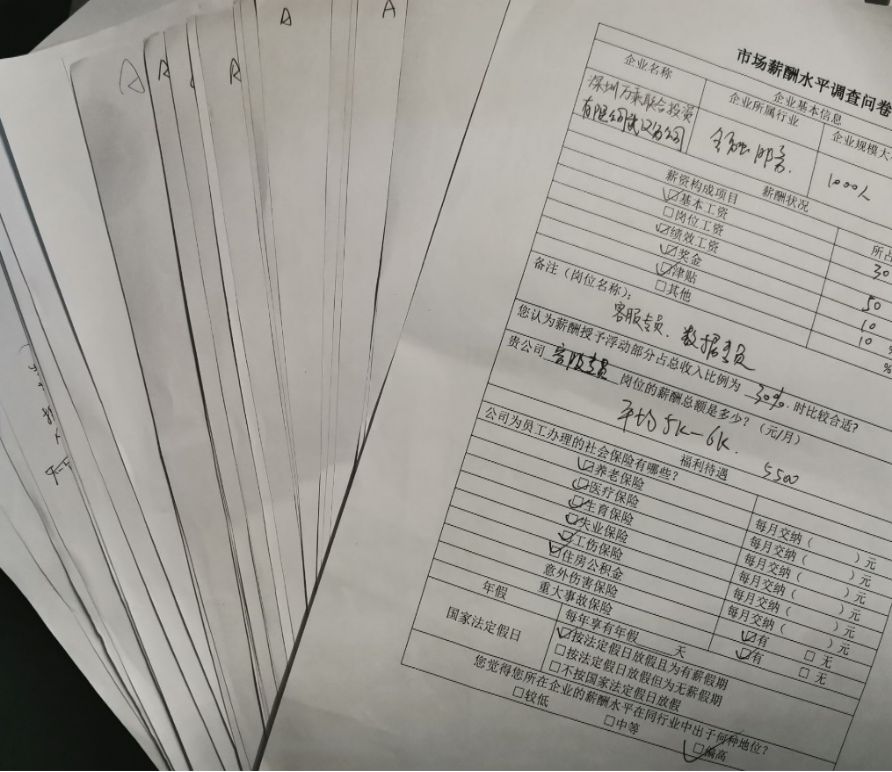 A
A
A
A
A
市场薪酬水平调查问卷
企业基本信息
企业名称
企业所属行业
企业规模大
深圳万乘联合投资
有限公司武汉分公司
金融服务
1000人
薪酬状况
薪资构成项目
所占
☑基本工资
30
□岗位工资
☑绩效工资
50
☑奖金
10
☑津贴
10 %
□其他
%
备注（岗位名称）：
客服专员、数据专员
您认为薪酬授予浮动部分占总收入比例为 30% 时比较合适？
贵公司 客服专员 岗位的薪酬总额是多少？（元/月）
平均5K-6K.
5500
福利待遇
公司为员工办理的社会保险有哪些？
☑养老保险
每月交纳（ ）元
☑医疗保险
每月交纳（ ）元
☑生育保险
每月交纳（ ）元
☑失业保险
每月交纳（ ）元
☑工伤保险
每月交纳（ ）元
☑住房公积金
每月交纳（ ）元
意外伤害保险
☑有 □无
重大事故保险
☑有 □无
年假
每年享有年假 天
国家法定假日
☑按法定假日放假且为有薪假期
□按法定假日放假但为无薪假期
□不按国家法定假日放假
您觉得您所在企业的薪酬水平在同行业中出于何种地位？
□较低 □中等 ☑偏高